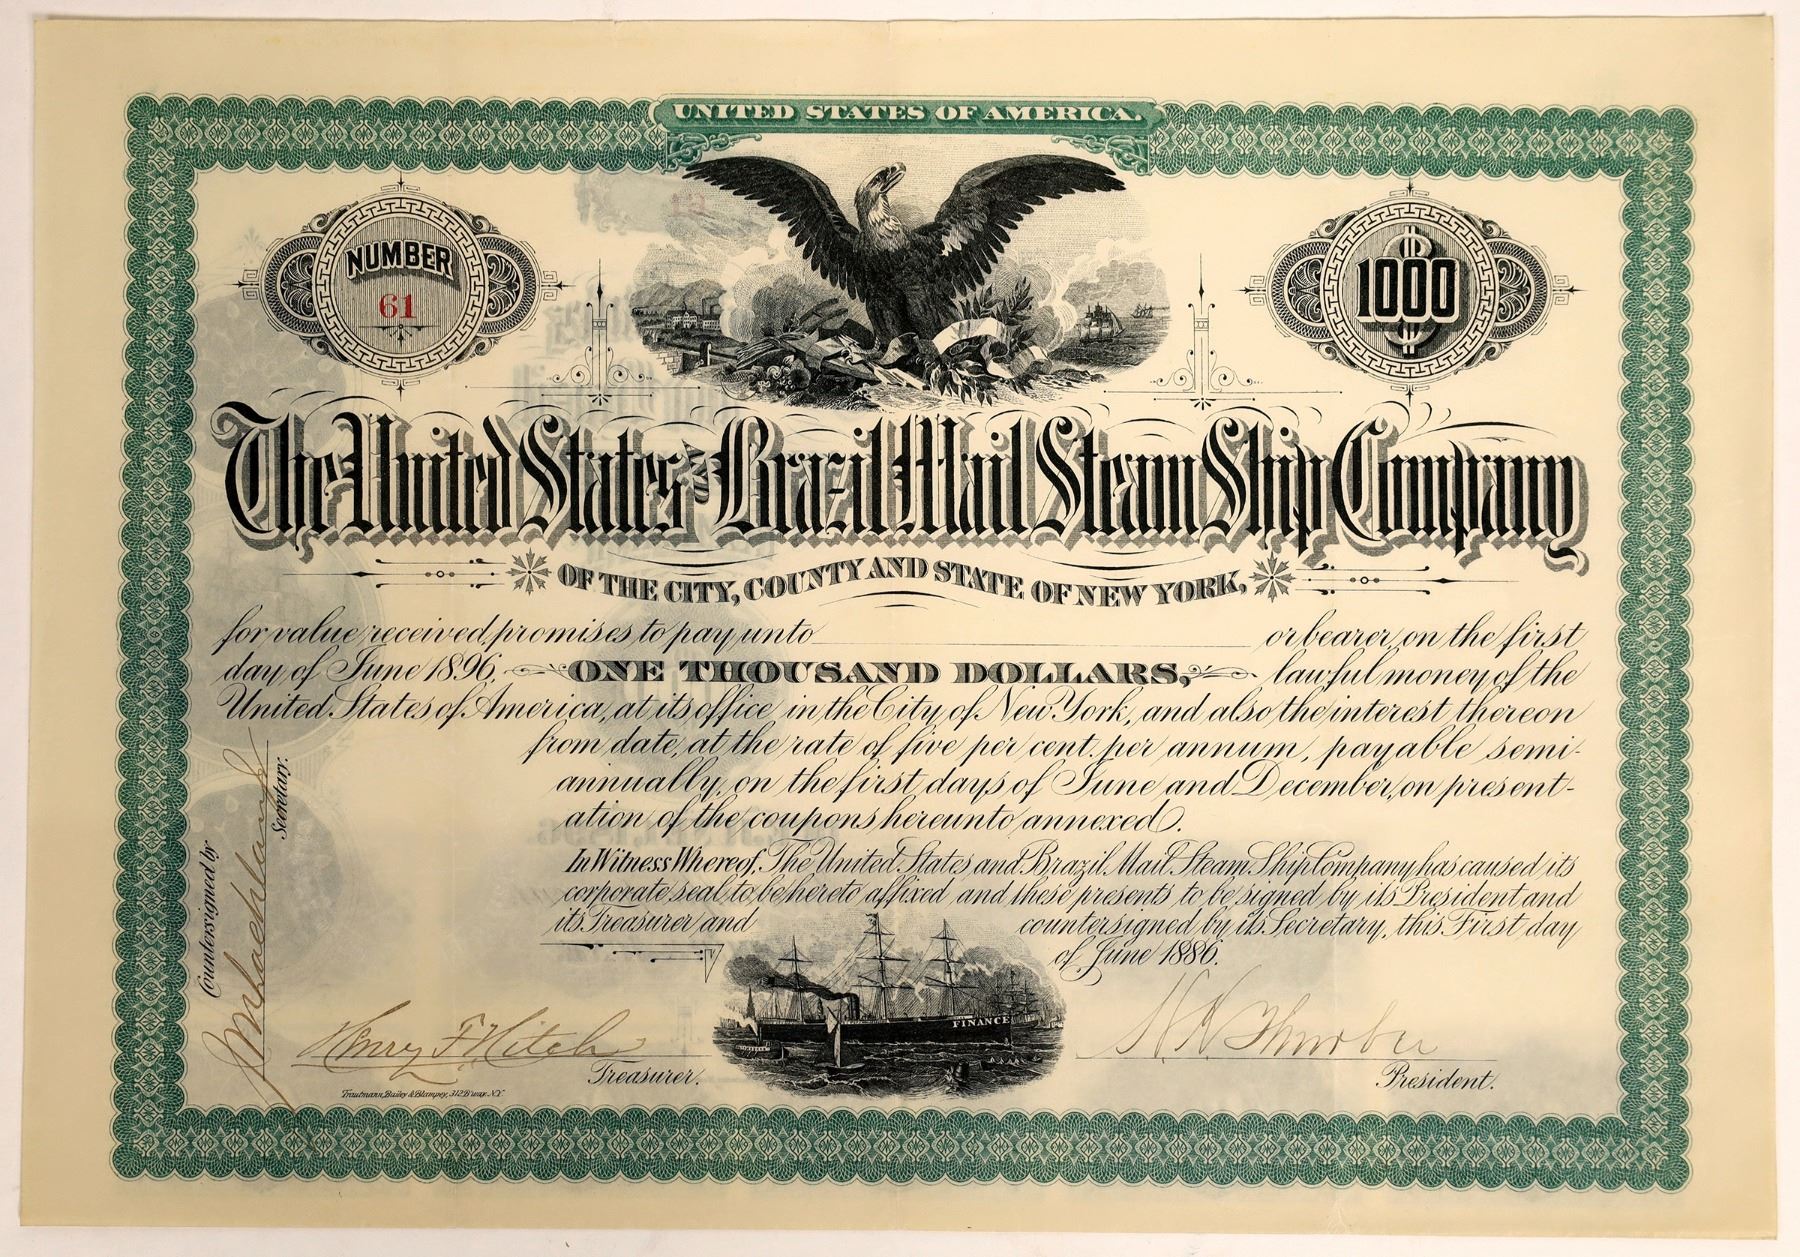 UNITED STATES OF AMERICA.
NUMBER
61
$1000
The United States AND Brazil Mail Steam Ship Company
OF THE CITY, COUNTY AND STATE OF NEW YORK,
for value received, promises to pay unto or bearer, on the first
day of June 1896, ONE THOUSAND DOLLARS, lawful money of the
United States of America, at its office in the City of New York, and also the interest thereon
from date, at the rate of five per cent. per annum, payable semi-
annually, on the first days of June and December, on present-
ation of the coupons hereunto annexed.
In Witness Whereof, The United States and Brazil Mail Steam Ship Company has caused its
corporate seal to be hereto affixed and these presents to be signed by its President and
its Treasurer and countersigned by its Secretary, this First day
of June 1886.
Countersigned by
Secretary.
FINANCE
Henry F Hitch
Treasurer.
H K Thurber
President.
Trautmann, Bailey & Blampey, 312 B'way. N.Y.